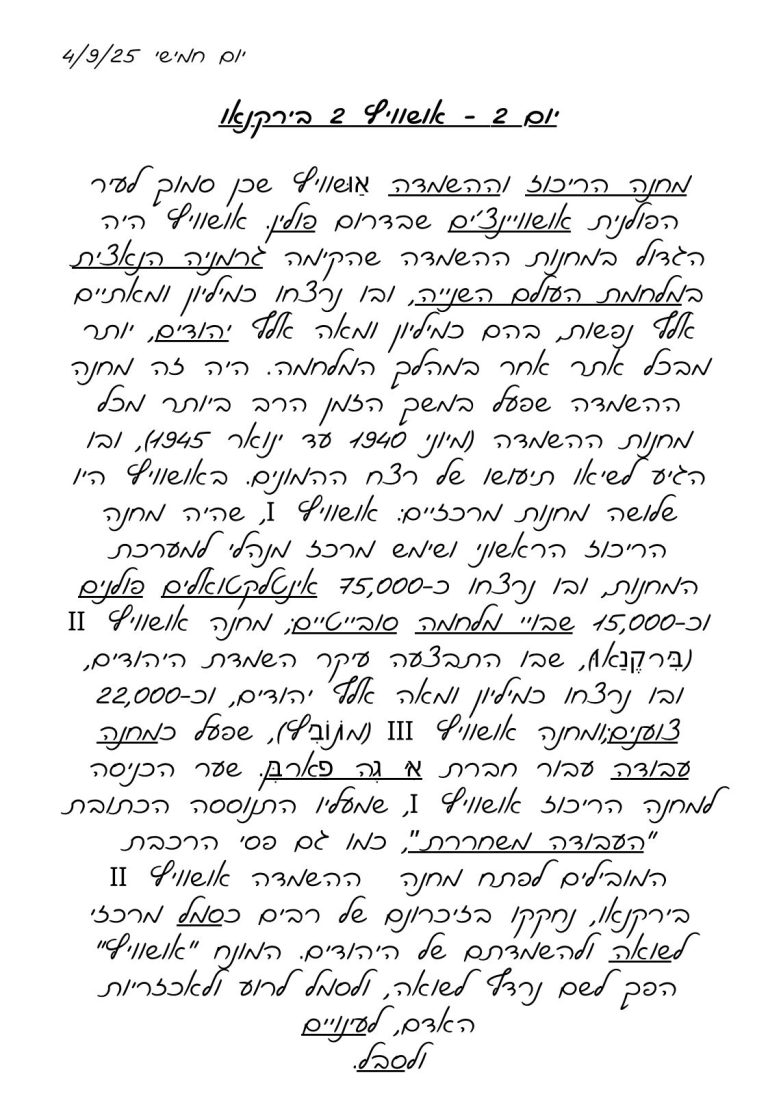 יום חמישי 4/9/25
יום 2 - אושוויץ 2 בירקנאו
מחנה הריכוז וההשמדה אוּשוויץ שכן סמוך לעיר
הפולנית אושוויינצ'ים שבדרום פולין. אושוויץ היה
הגדול במחנות ההשמדה שהקימה גרמניה הנאצית
במלחמת העולם השנייה, ובו נרצחו כמיליון ומאתיים
אלף נפשות, בהם כמיליון ומאה אלף יהודים, יותר
מבכל אתר אחר במהלך המלחמה. היה זה מחנה
ההשמדה שפעל במשך הזמן הרב ביותר מכל
מחנות ההשמדה (מיוני 1940 עד ינואר 1945), ובו
הגיע לשיאו תיעושו של רצח ההמונים. באושוויץ היו
שלושה מחנות מרכזיים: אושוויץ I, שהיה מחנה
הריכוז הראשוני ושימש מרכז מנהלי למערכת
המחנות, ובו נרצחו כ-75,000 אינטלקטואלים פולנים
וכ-15,000 שבויי מלחמה סובייטיים; מחנה אושוויץ II
(בִּירקֶנַאוּ), שבו התבצעה עיקר השמדת היהודים,
ובו נרצחו כמיליון ומאה אלף יהודים, וכ-22,000
צוענים;ומחנה אושוויץ III (מוֹנוֹבִיץ), שפעל כמחנה
עבודה עבור חברת אִי גֶה פארבֶּן. שער הכניסה
למחנה הריכוז אושוויץ I, שמעליו התנוססה הכתובת
"העבודה משחררת", כמו גם פסי הרכבת
המובילים לפתח מחנה ההשמדה אושוויץ II
בירקנאו, נחקקו בזיכרונם של רבים כסמל מרכזי
לשואה ולהשמדתם של היהודים. המונח "אושוויץ"
הפך לשם נרדף לשואה, ולסמל לרוע ולאכזריות
האדם, לעינויים
ולסבל.